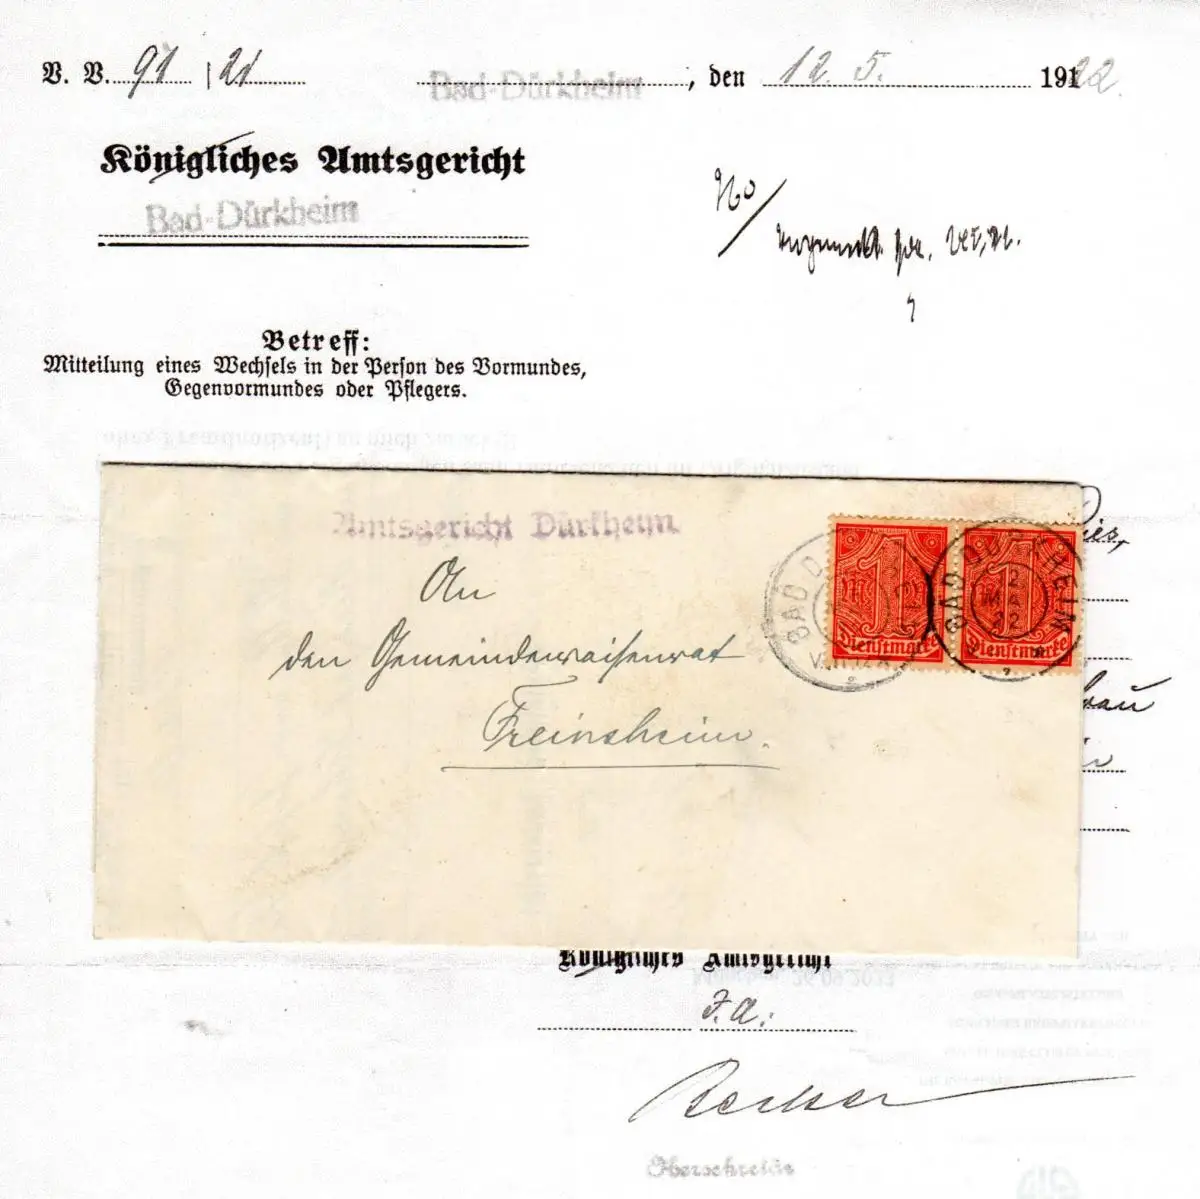 V. V. 91 | 21 Bad-Dürkheim, den 12. 5. 1922.
Königliches Amtsgericht
Bad-Dürkheim
No/
Betreff:
Mitteilung eines Wechsels in der Person des Vormundes,
Gegenvormundes oder Pflegers.
Amtsgericht Dürkheim
An
den Gemeindewaisenrat
Freinsheim.
1 M
Dienstmarke
1 M
Dienstmarke
BAD DÜRKHEIM
BAD DÜRKHEIM
12 MAI 22
Königliches Amtsgericht
J. A.:
Becker
Obersekretär